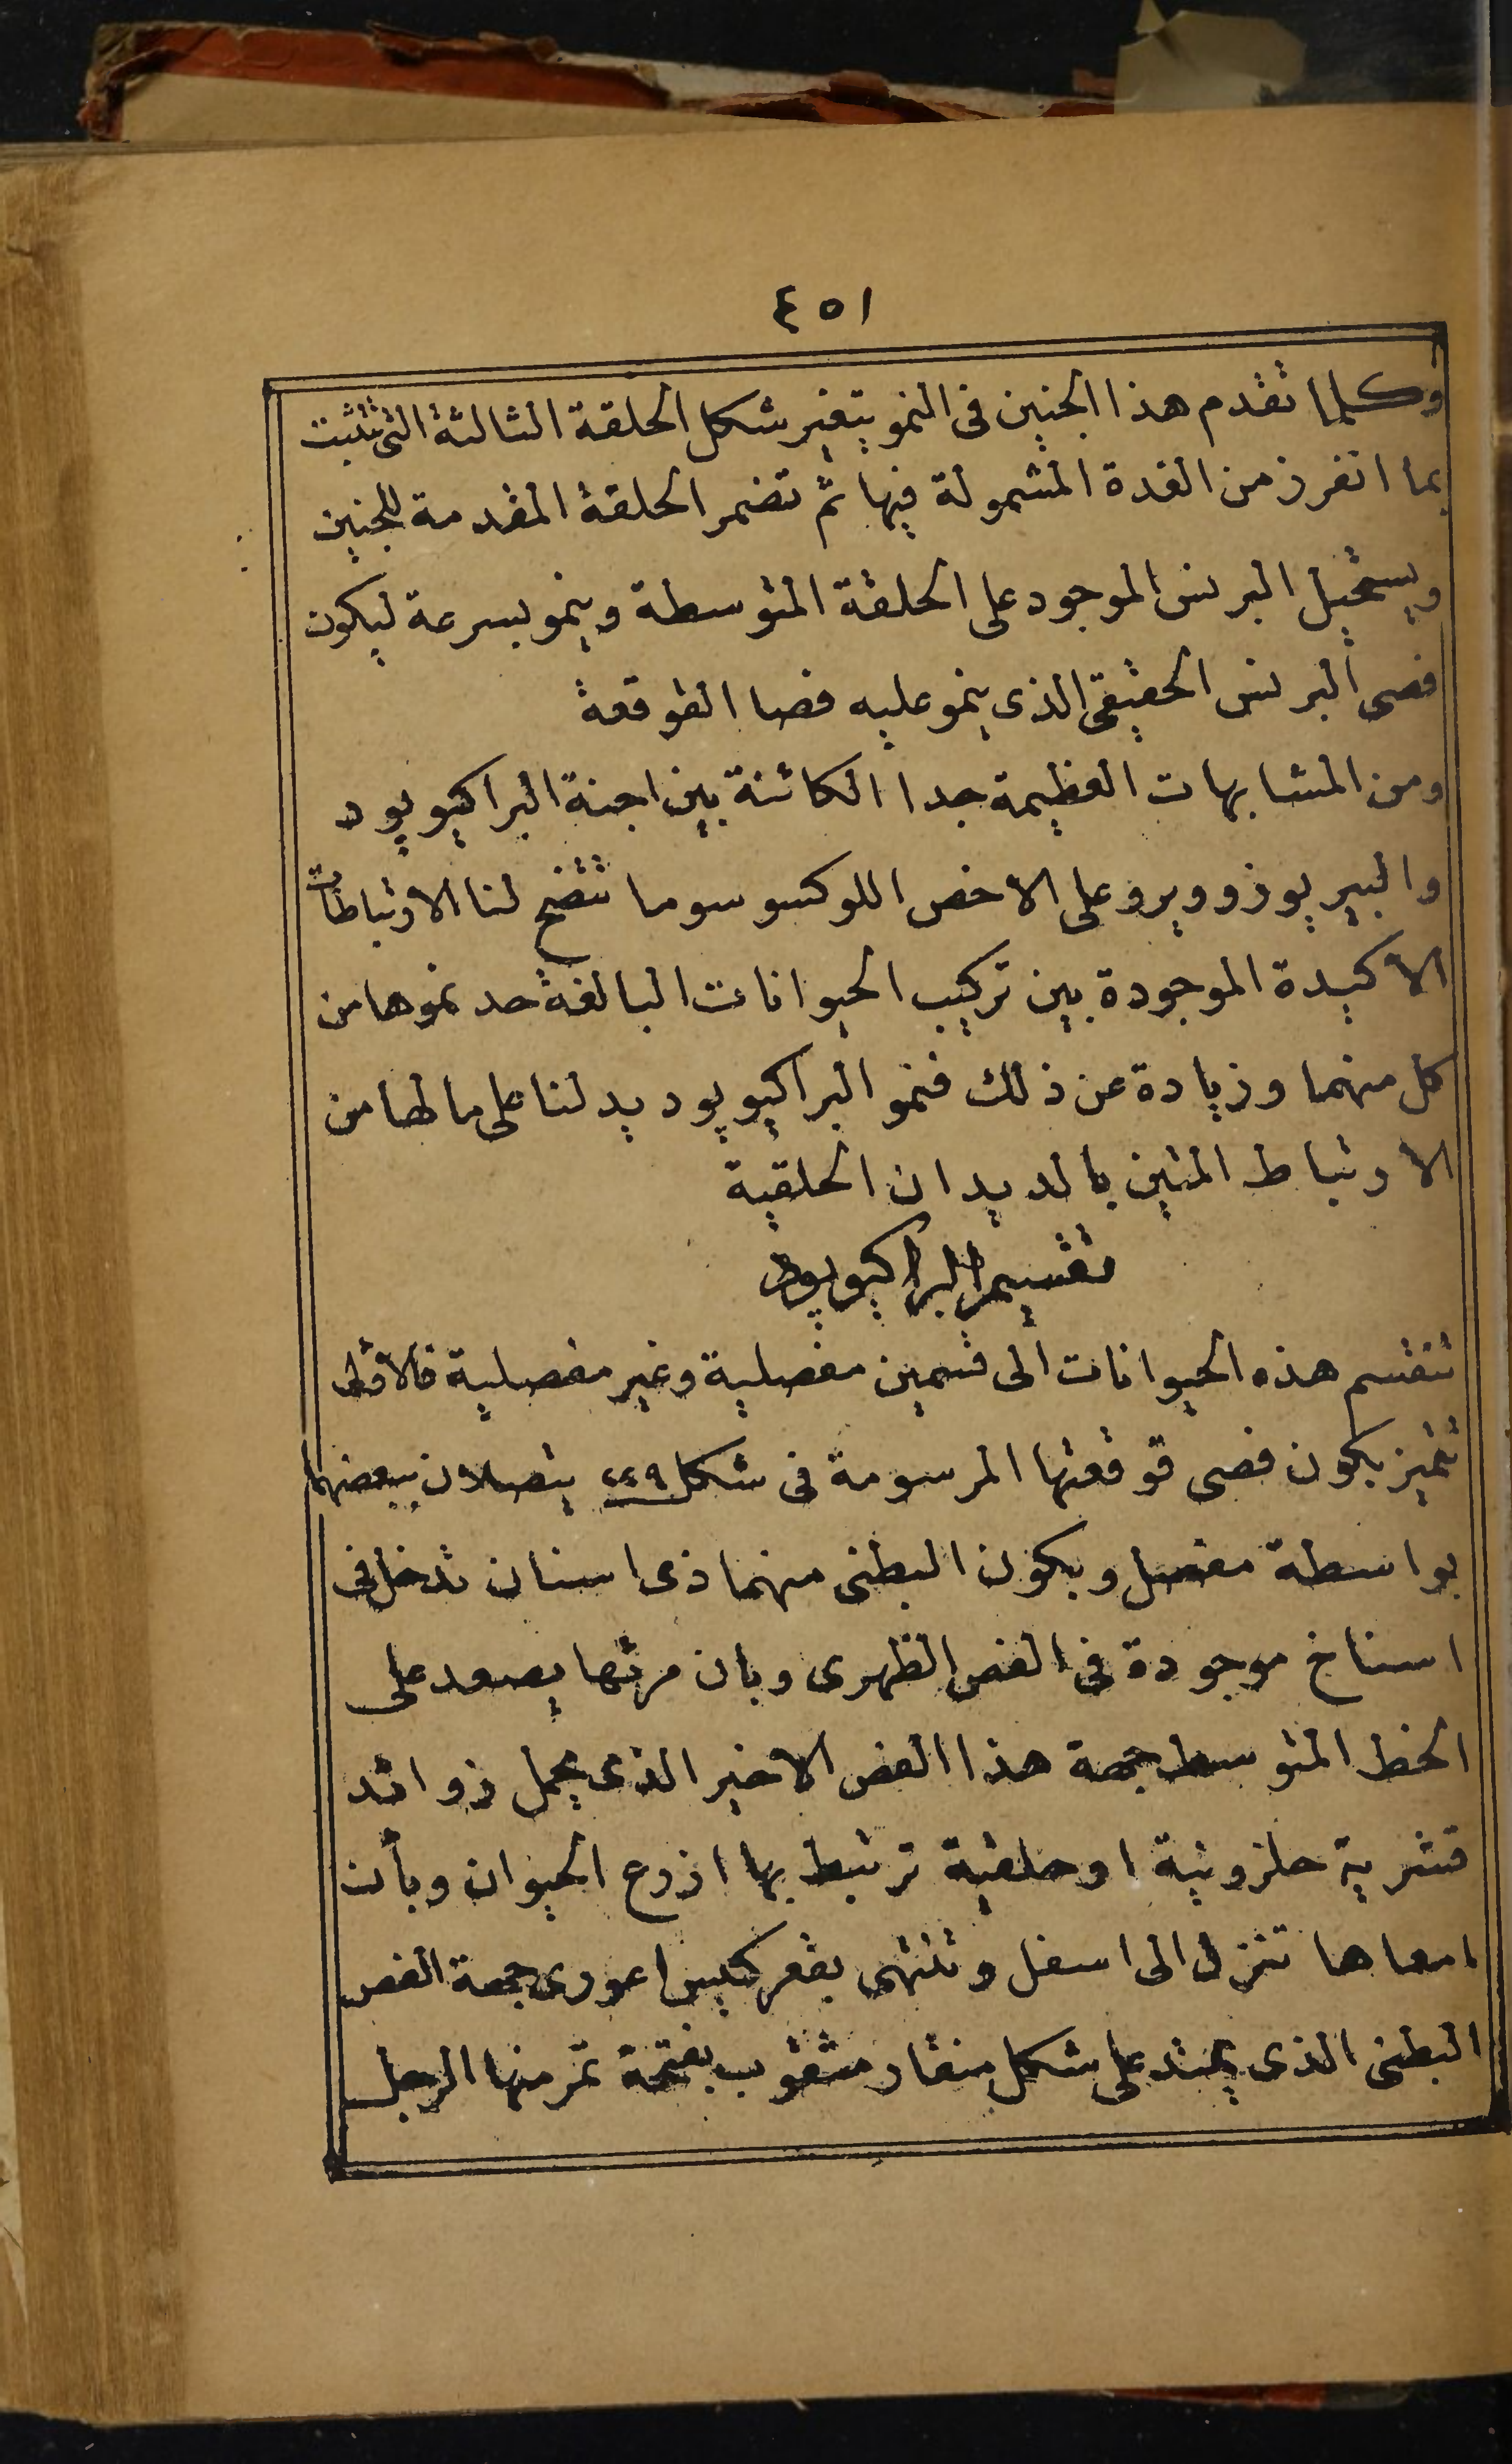 ٤٥١
وكلما تقدم هذا الجنين فى النمو يتغير شكل الحلقة الثالثة التى تثبت
بما انفرز من الغدة المشمولة فيها ثم تضمر الحلقة المقدمة للجنين
ويستحيل البرنس الموجود على الحلقة المتوسطة وينمو بسرعة ليكون
فصى البرنس الحقيقى الذى ينمو عليه فصا القوقعة
ومن المشابهات العظيمة جدا الكائنة بين اجنة البراكيوپود
والبيريوزوويرو على الاخص اللوكسوسوما تتضح لنا الارتباطات
الاكيدة الموجودة بين تركيب الحيوانات البالغة حد نموها من
كل منهما وزيادة عن ذلك فنمو البراكيوپود يدلنا على مالها من
الارتباط المتين بالديدان الحلقية
تقسيم البراكيوپود
تنقسم هذه الحيوانات الى قسمين مفصلية وغير مفصلية فالاولى
تتميز بكون فصى قوقعتها المرسومة فى شكل ٢٤٩ يتصلان ببعضهما
بواسطة مفصل وبكون البطنى منهما ذى اسنان تدخل فى
اسناخ موجودة فى الفص الظهرى وبان مرئها يصعد على
الخط المتوسط جهة هذا الفص الاخير الذى يحمل زوائد
قشرية حلزونية او حلقية ترتبط بها اذرع الحيوان وبأن
امعاها تنزل الى اسفل وتنتهى بقعر كيس اعورى جهة الفص
البطنى الذى يمتد على شكل منقار مثقوب بفتحة تمر منها الرجل